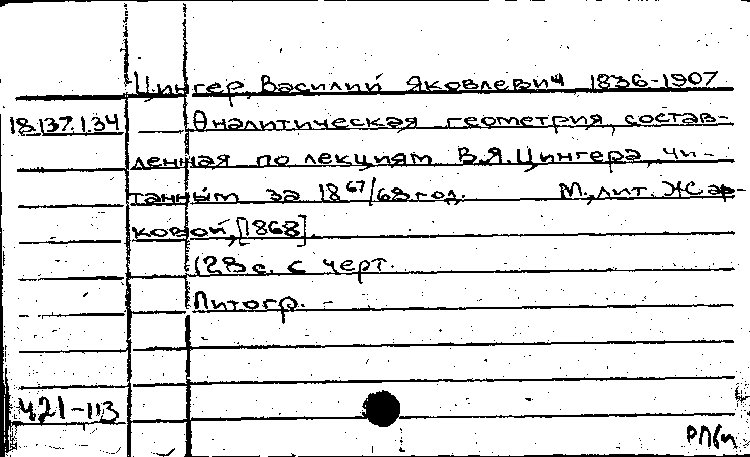 Цингер, Василий Яковлевич 1836-1907
18.137.1.34 Аналитическая геометрия, состав-
ленная по лекциям В.Я.Цингера, чи-
танным за 18⁶⁷/68 год. М., лит. Жар-
ковой, [1868].
128 с. с черт.
Литогр.
421-113